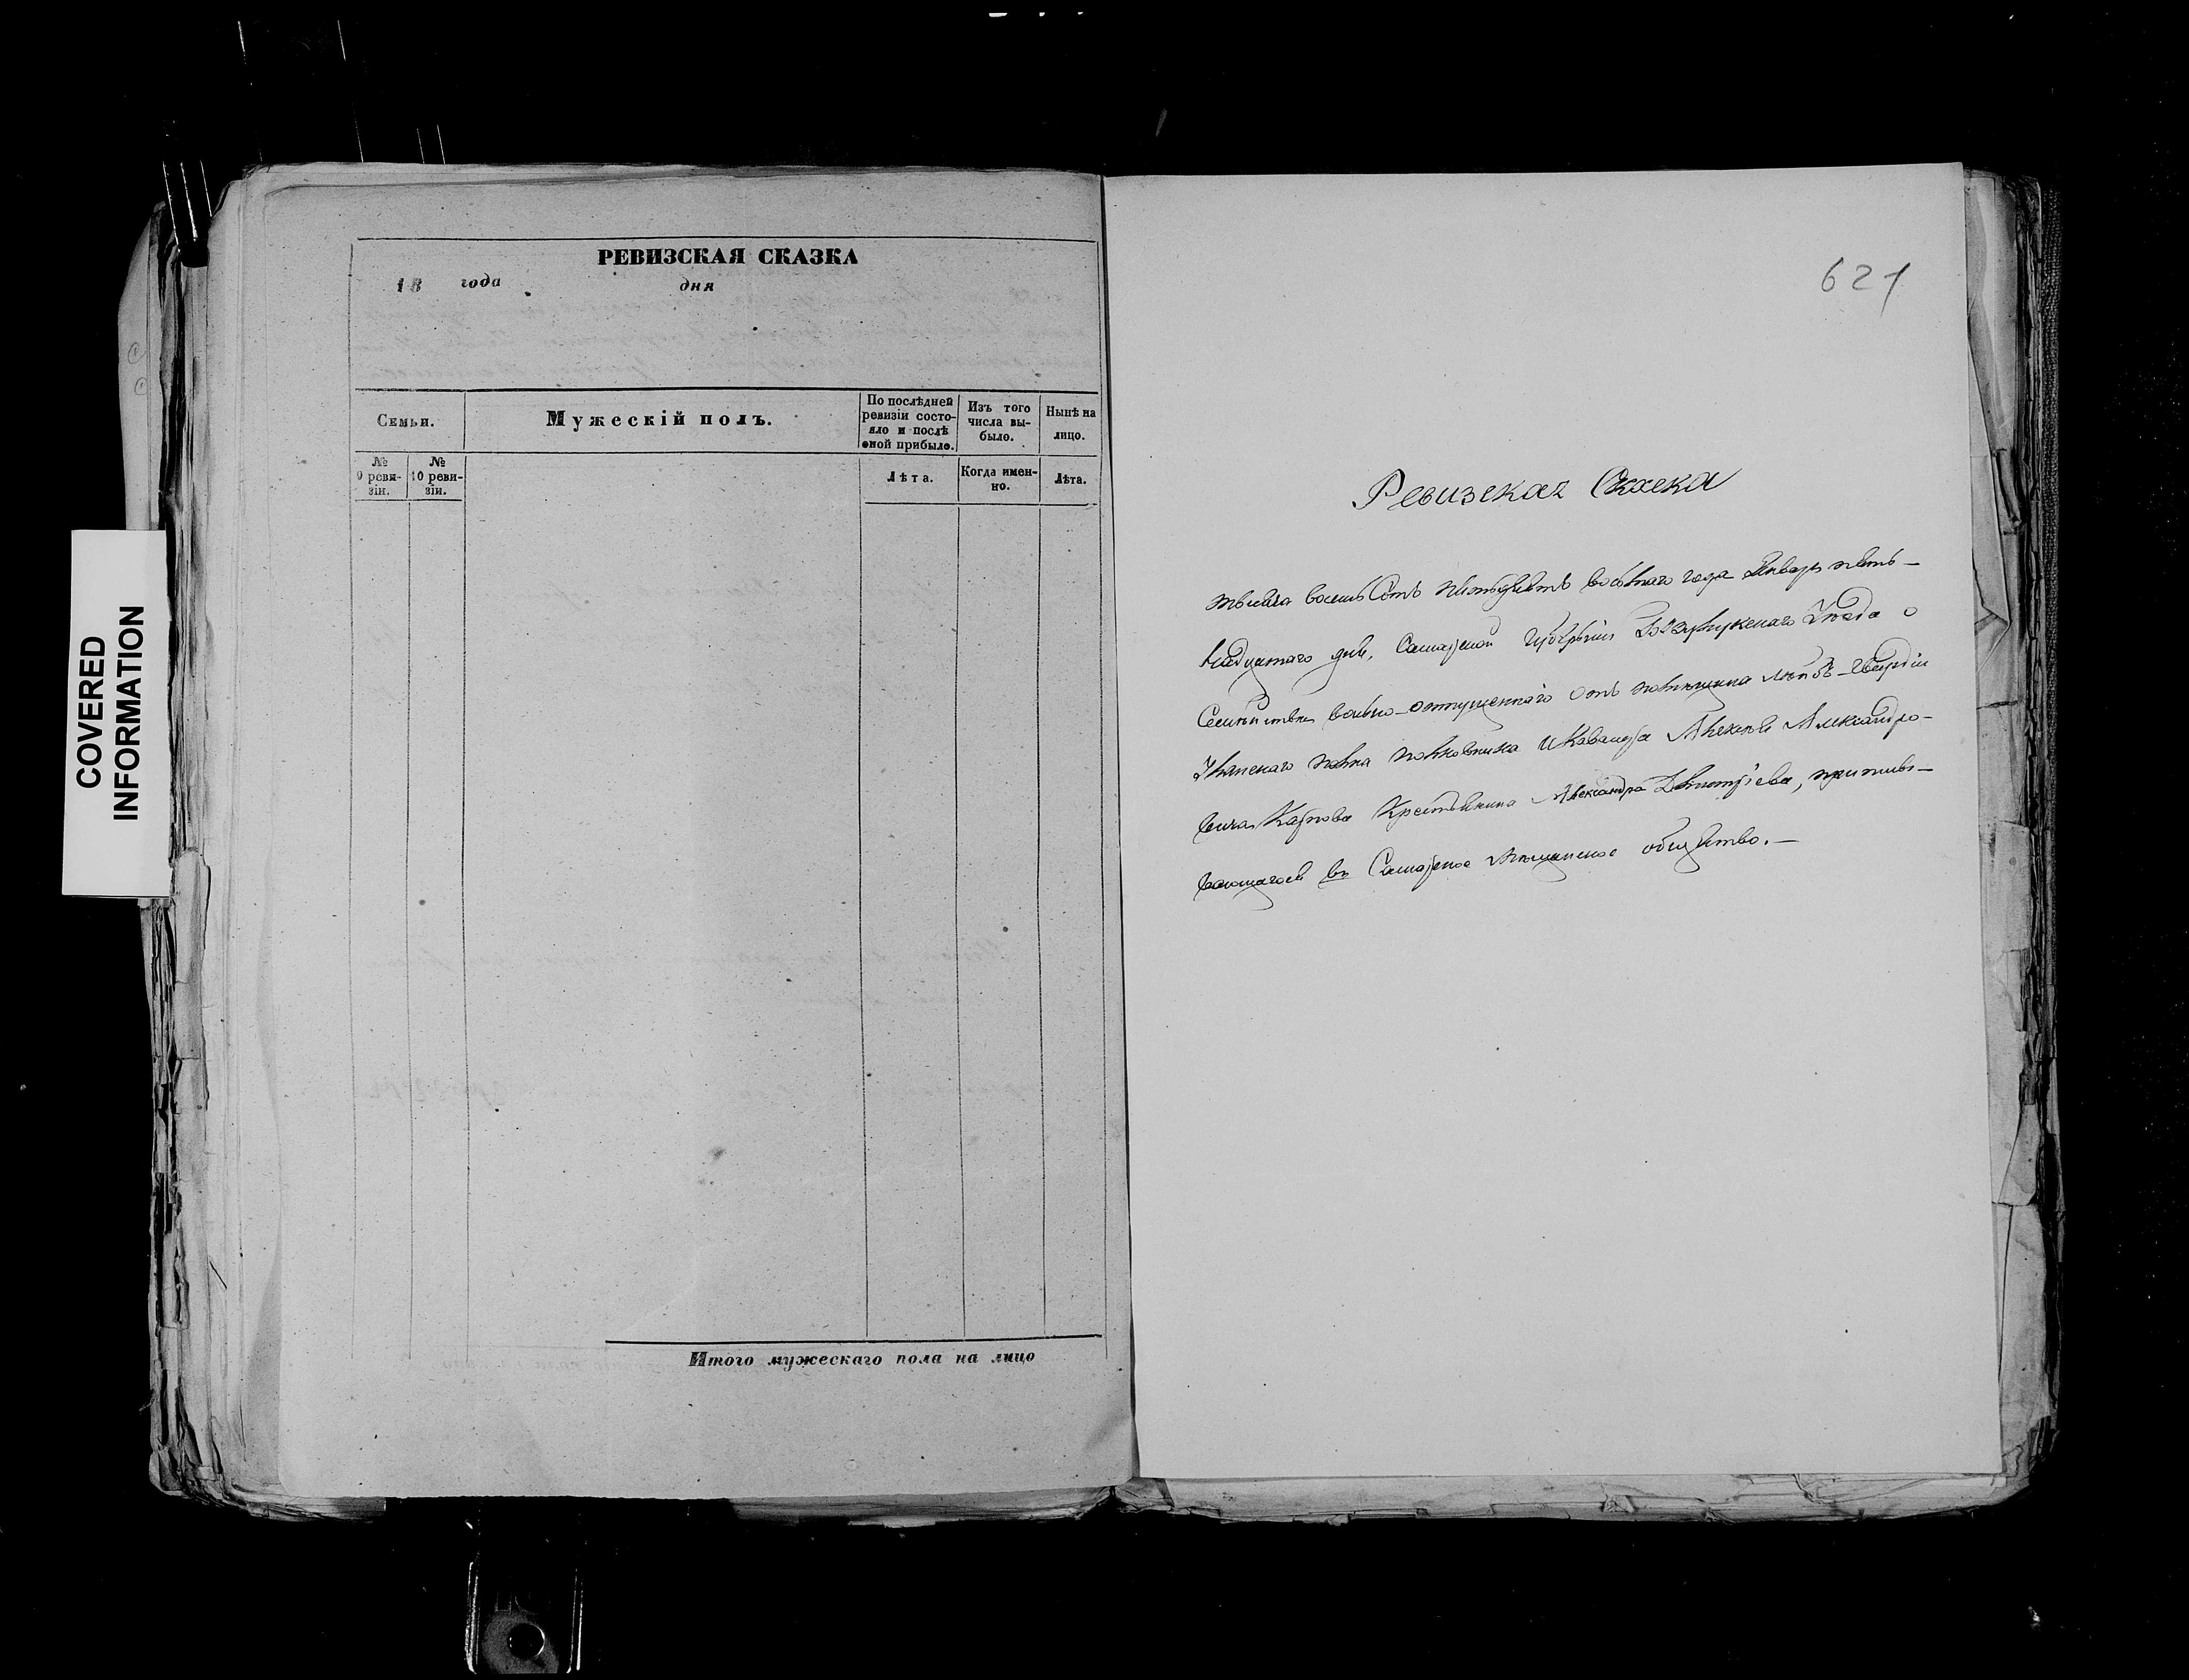 COVERED
INFORMATION
РЕВИЗСКАЯ СКАЗКА
18 года дня
Семьи.
Мужескій полъ.
По послѣдней
ревизіи состо-
яло и послѣ
оной прибыло.
Изъ того
числа вы-
было.
Нынѣ на
лицо.
№
9 реви-
зіи.
№
10 реви-
зіи.
Лѣта.
Когда имен-
но.
Лѣта.
Итого мужескаго пола на лицо
621
Ревизская Скаска
тысяча восемьсотъ пятьдесятъ восьмаго года Января пять-
надцатаго дня, Самарской Губерніи Бузулукскаго Уѣзда о
Семействѣ вольно-отпущеннаго отъ помѣщика лейбъ-гвардіи
Уланскаго полка полковника и Кавалера Алексѣя Александро-
вича Карпова Крестьянина Александра Дмитріева, приписы-
вающагося въ Самарское Мѣщанское общество.—